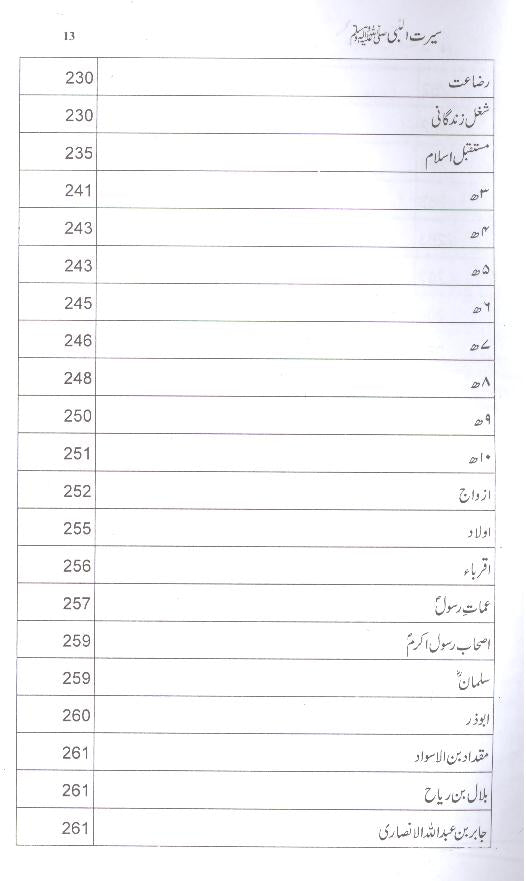 سیرت النبی ﷺ 13
رضاعت 230
شغل زندگانی 230
مستقبل اسلام 235
۳ھ 241
۴ھ 243
۵ھ 243
۶ھ 245
۷ھ 246
۸ھ 248
۹ھ 250
۱۰ھ 251
ازواج 252
اولاد 255
اقرباء 256
عماتِ رسولؐ 257
اصحاب رسول اکرمؐ 259
سلمانؓ 259
ابوذر 260
مقداد بن الاسواد 261
بلال بن ریاح 261
جابر بن عبداللہ الانصاری 261